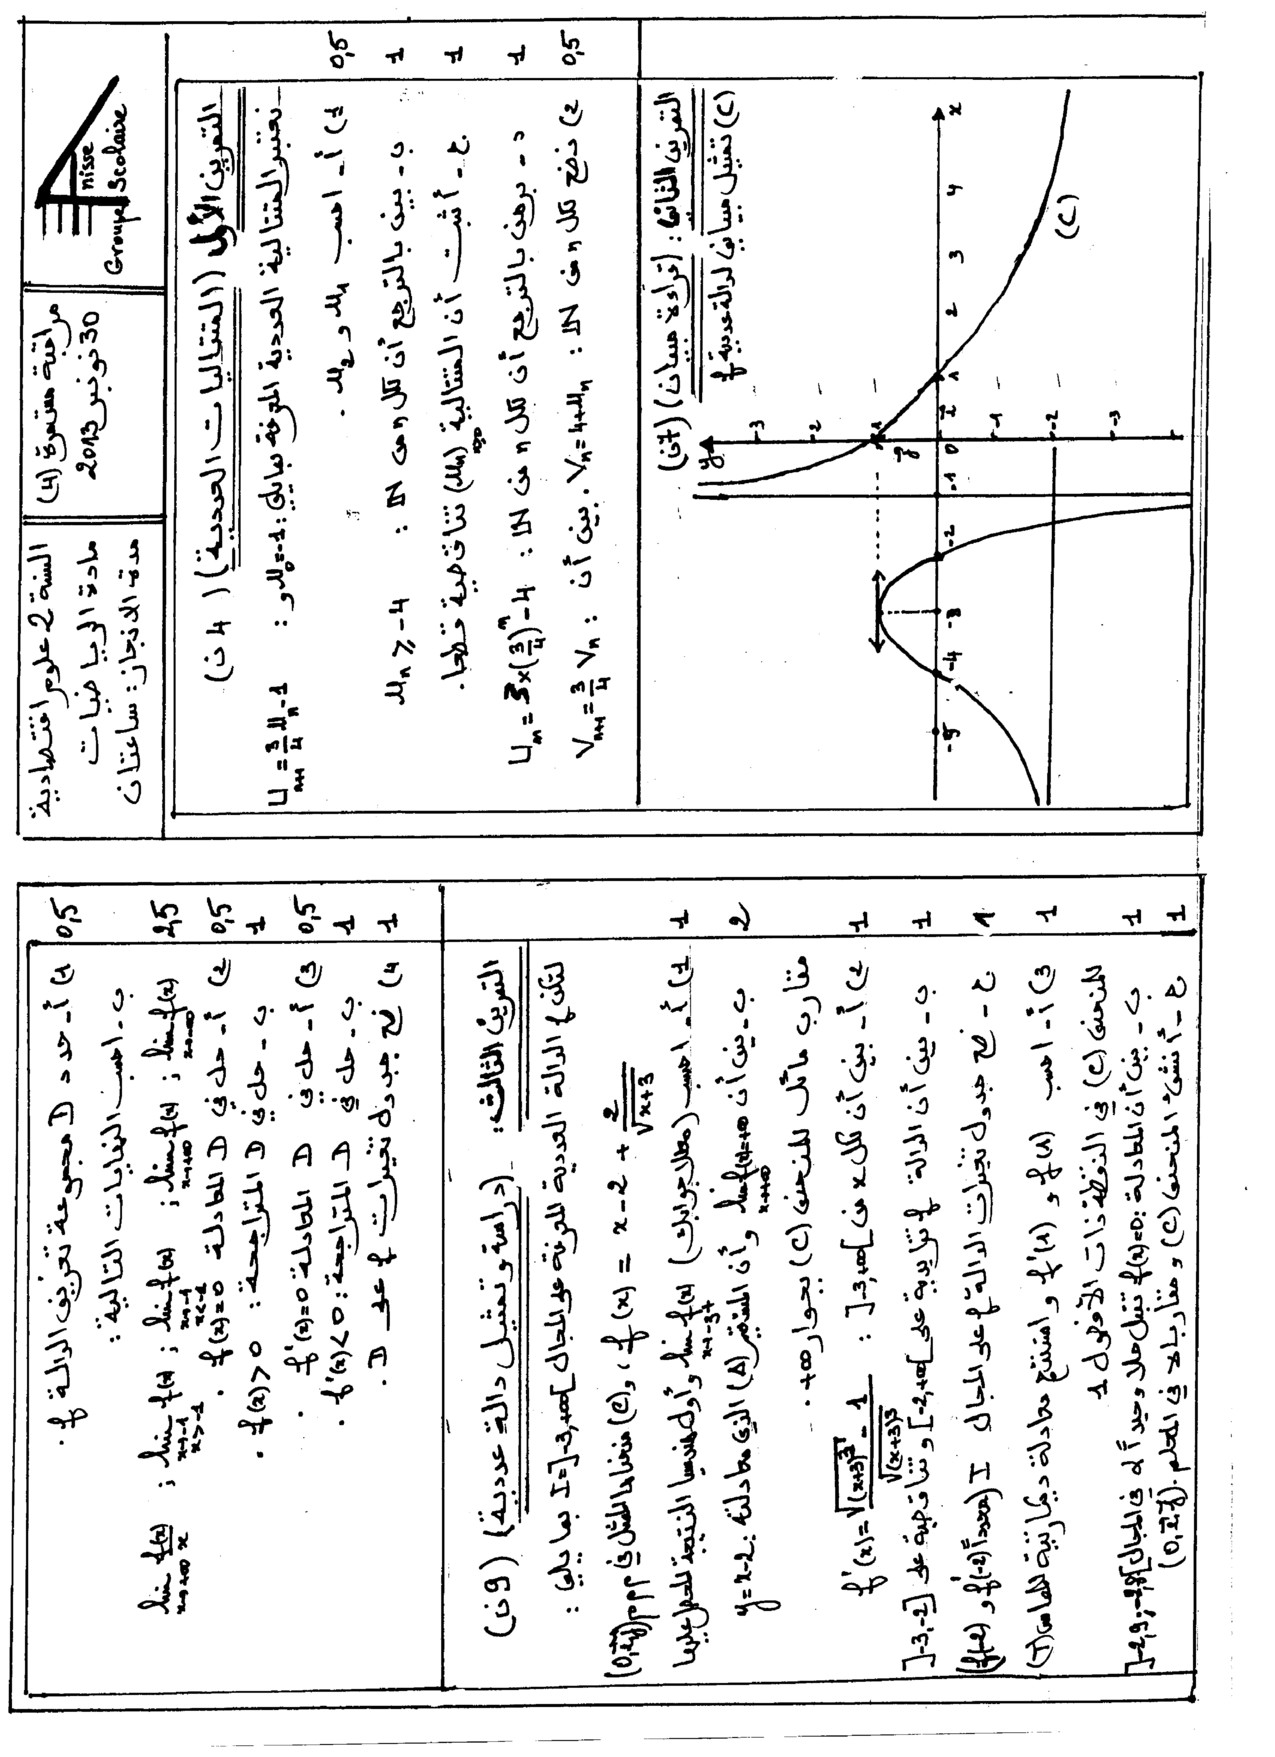 السنة 2 علوم اقتصادية
مادة الرياضيات
مدة الانجاز: ساعتان
مراقبة مستمرة (4)
30 نونبر 2013
nisse
Groupe Scolaire
التمرين الأول (المتتاليات العددية) (4 ن)
نعتبر المتتالية العددية المعرفة بمايلي: u₀=-1 و:
Uₙ₊₁ = 3/4 Uₙ - 1
1) أ- احسب u₁ و u₂. 0,5
ب- بين بالترجع أن لكل n من IN : uₙ ≥ -4 1
ج- أثبت أن المتتالية (uₙ)ₙ≥₀ تناقصية قطعا. 1
د- برهن بالترجع أن لكل n من IN : Uₙ = 3×(3/4)ⁿ - 4 1
2) نضع لكل n من IN : Vₙ = 4+uₙ. بين أن : Vₙ₊₁ = 3/4 Vₙ 0,5
التمرين الثاني: (قراءة مبيان) (7ن)
(C) تمثيل مبياني لدالة عددية f
y
3
2
1
j
0
i
-1
-2
-3
-5
-4
-3
-2
-1
1
2
3
4
x
(C)
1) أ- حدد D مجموعة تعريف الدالة f. 0,5
ب- احسب النهايات التالية:
lim f(x) x→-∞ ; lim f(x) x→+∞ ; lim f(x) x→-1 x<-1 ; lim f(x) x→-1 x>-1 ; lim f(x)/x x→+∞ 2,5
2) أ- حل في D المعادلة f(x)=0. 0,5
ب- حل في D المتراجحة: f(x)>0. 1
3) أ- حل في D المعادلة f'(x)=0. 0,5
ب- حل في D المتراجحة: f'(x)<0. 1
4) ضع جدول تغيرات f على D. 1
التمرين الثالث: (دراسة وتمثيل دالة عددية) (9ن)
لتكن f الدالة العددية المعرفة على المجال I=]-3,+∞[ بما يلي:
f(x) = x-2 + 2/√(x+3) ، و(C) منحناها الممثل في م م م (0,i,j)
1) أ- احسب (معللا جوابك) lim f(x) x→-3⁺ وأول هندسيا النتيجة المحصل عليها 1
ب- بين أن lim f(x)=+∞ x→+∞ وأن المستقيم (Δ) الذي معادلته: y=x-2 2
مقارب مائل للمنحنى (C) بجوار +∞.
2) أ- بين أن لكل x من ]-3,+∞[ : f'(x) = (√(x+3)³ - 1)/√(x+3)³ 1
ب- بين أن الدالة f تزايدية على [-2,+∞[ و تناقصية على ]-3,-2] 1
ج- ضع جدول تغيرات الدالة f على المجال I (محددا f'(-2) و f(-2)) 1
3) أ- احسب f(1) و f'(1) واستنتج معادلة ديكارتية للمماس (T) 1
للمنحنى (C) في النقطة ذات الأفصول 1
ب- بين أن المعادلة: f(x)=0 تقبل حلا وحيدا α في المجال ]-2,9;-2,8[ 1
ج- أنشئ المنحنى (C) ومقارباته في المعلم (0,i,j). 1